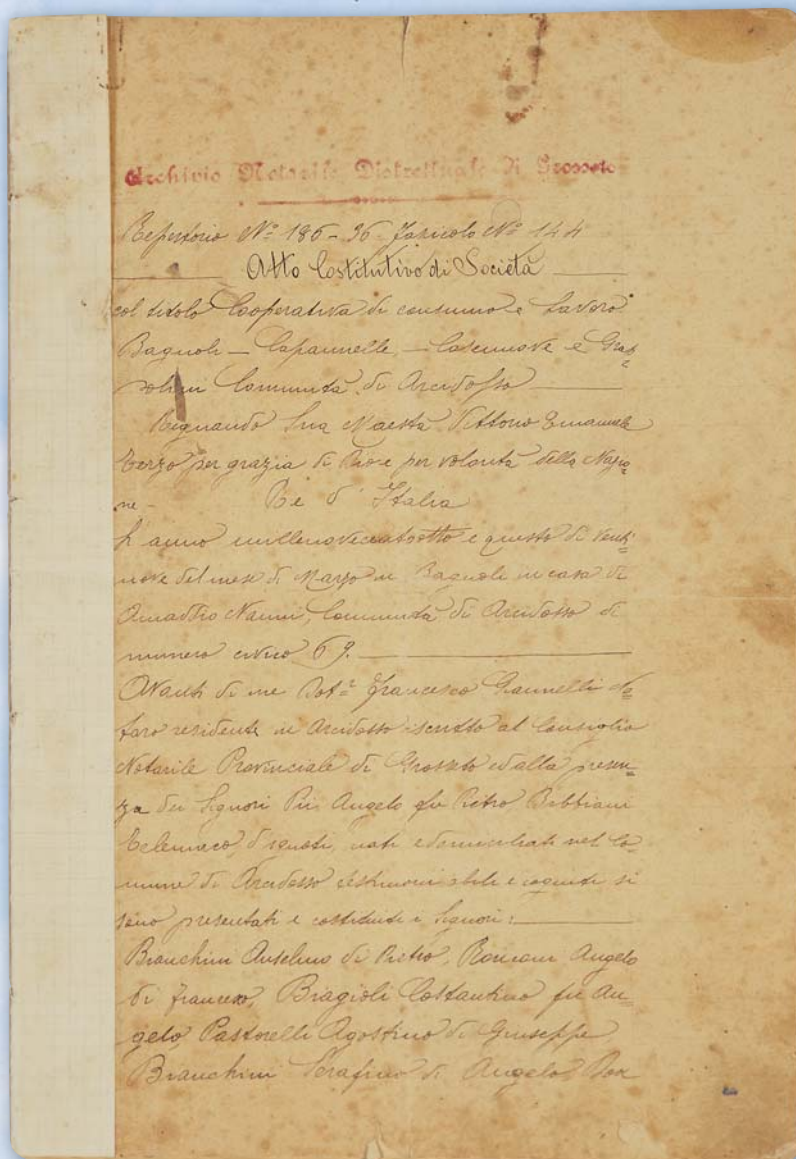 Archivio Notarile Distrettuale di Grosseto
Repertorio Nº 186-96 Fascicolo Nº 144
Atto Costitutivo di Società
col titolo Cooperativa di consumo e Lavoro
Bagnoli — Capannelle — Casenuove e Grap=
polini Comunità di Arcidosso
Regnando Sua Maestà Vittorio Emanuele
Terzo per grazia di Dio e per volontà della Nazio
ne — Re d'Italia
L'anno millenovecentootto e questo dì venti=
nove del mese di Marzo in Bagnoli in casa di
Amaddio Nanni, Comunità di Arcidosso di
numero civico 69.
Avanti di me Dotr Francesco Giannelli No=
taro residente in Arcidosso iscritto al Consiglio
Notarile Provinciale di Grosseto ed alla presen=
za dei Signori Pii Angelo fu Pietro Bibbiani
Telemaco nati e domiciliati nel Co=
mune di Arcidosso testimoni abili e cogniti si
sono presentati e costituiti i Signori:
Bianchini Anselmo di Pietro, Ronconi Angelo
di Francesco, Biagioli Costantino fu An=
gelo, Pastorelli Agostino di Giuseppe
Bianchini Serafino di Angelo